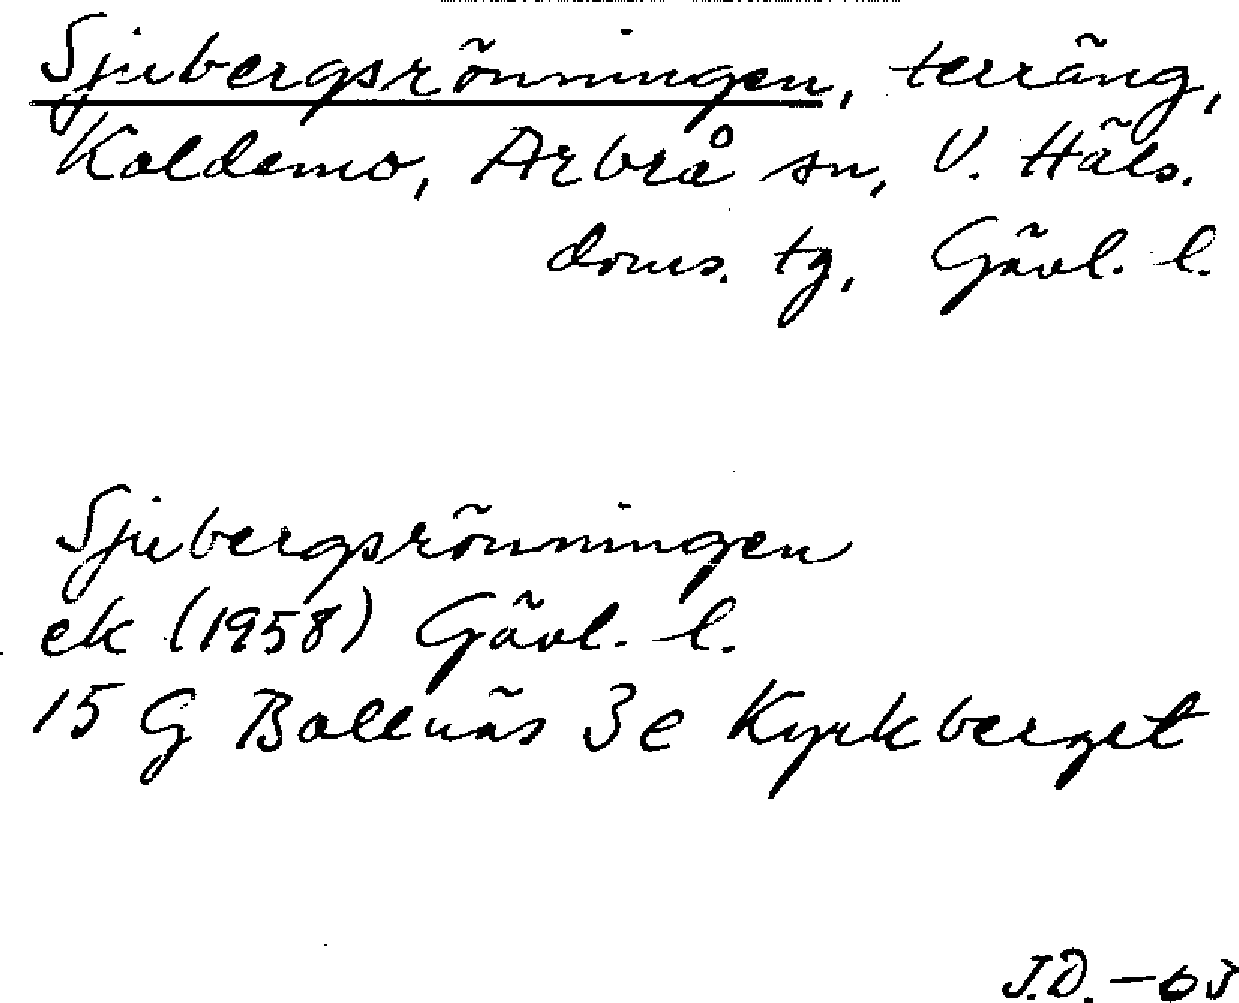 Sjubergsrönningen, terräng,
Koldemo, Arbrå sn, V. Häls.
doms. tg, Gävl. l.
Sjubergsrönningen
ek (1958) Gävl. l.
15 G Bollnäs 3e Kyrkberget
J.D. -63